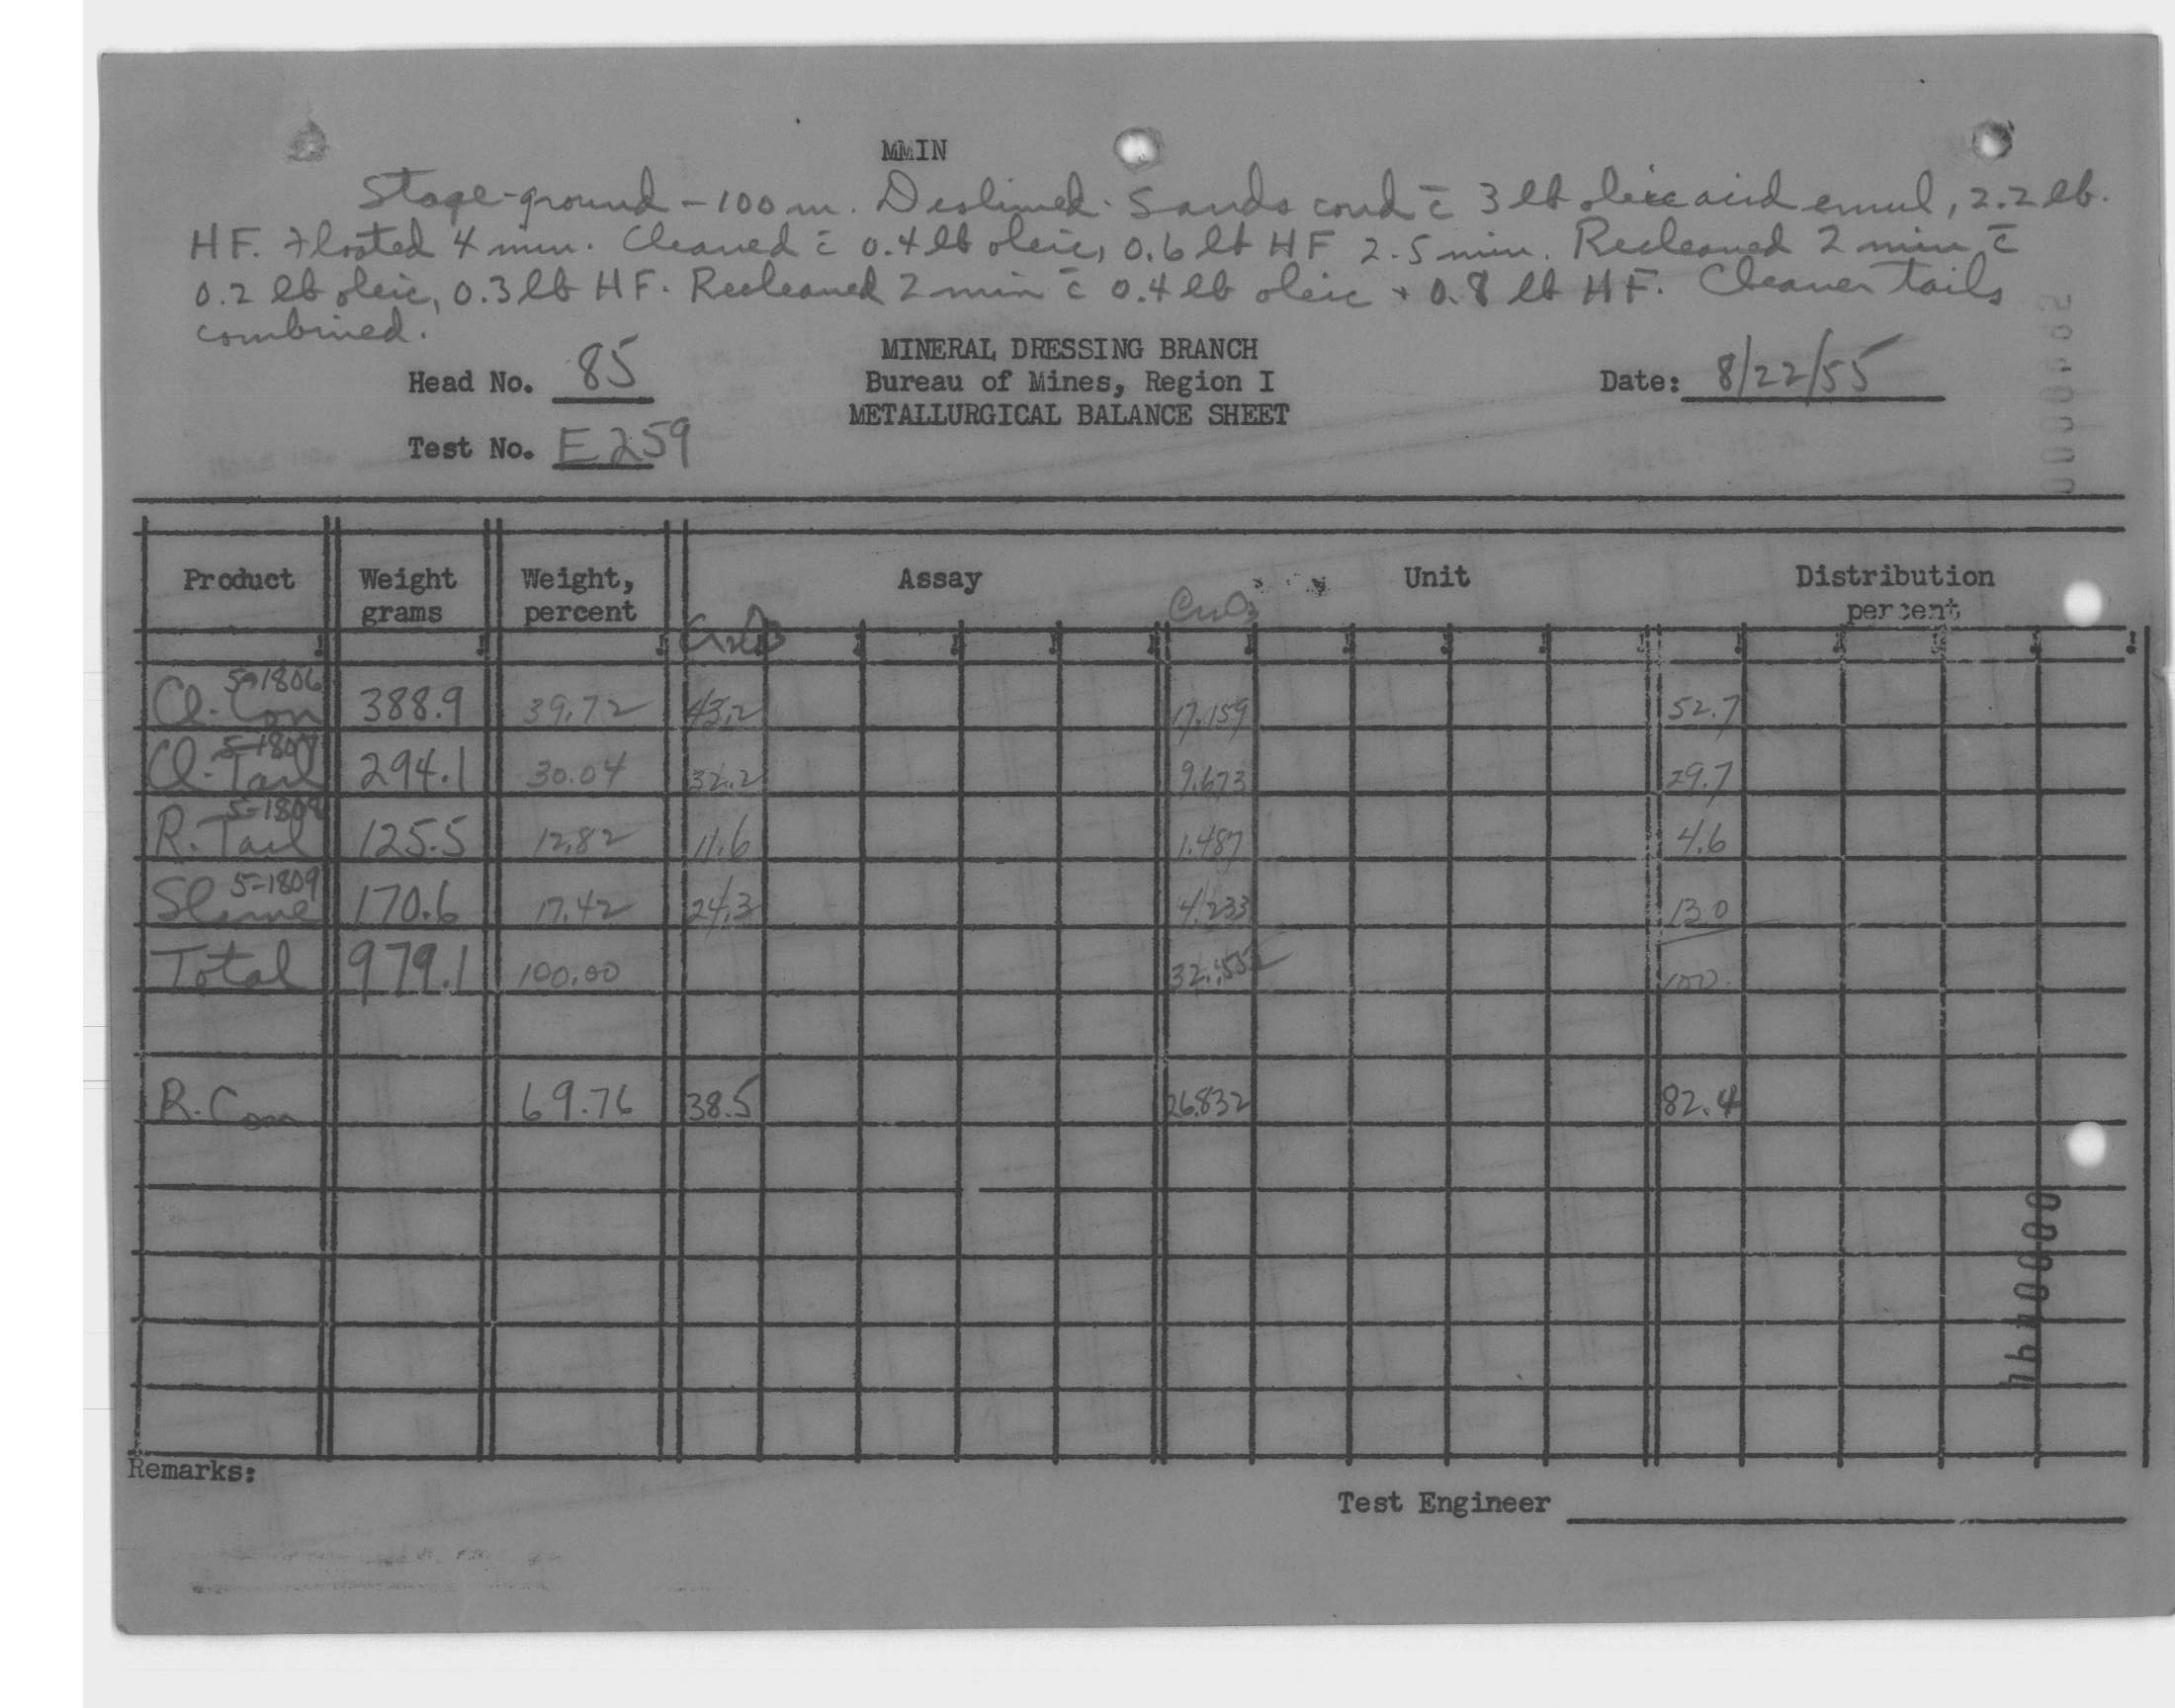 MMIN
Stage-ground -100 m. Deslimed. Sands cond c̄ 3 lb oleic acid emul, 2.2 lb.
HF. Floated 4 min. Cleaned c̄ 0.4 lb oleic, 0.6 lb HF 2.5 min. Recleaned 2 min c̄
0.2 lb oleic, 0.3 lb HF. Recleaned 2 min c̄ 0.4 lb oleic + 0.8 lb HF. Cleaner tails
combined.
MINERAL DRESSING BRANCH
Head No. 85 Bureau of Mines, Region I Date: 8/22/55
METALLURGICAL BALANCE SHEET
Test No. E259
Product Weight grams Weight, percent Assay Unit Distribution percent
Cr2O3 Cr2O3
5-1806
Cl. Con 388.9 39.72 43.2 17.159 52.7
5-1807
Cl. Tail 294.1 30.04 32.2 9.673 29.7
5-1808
R. Tail 125.5 12.82 11.6 1.487 4.6
5-1809
Slime 170.6 17.42 24.3 4.233 13.0
Total 979.1 100.00 32.552 100.
R. Con 69.76 38.5 26.832 82.4
Remarks:
Test Engineer